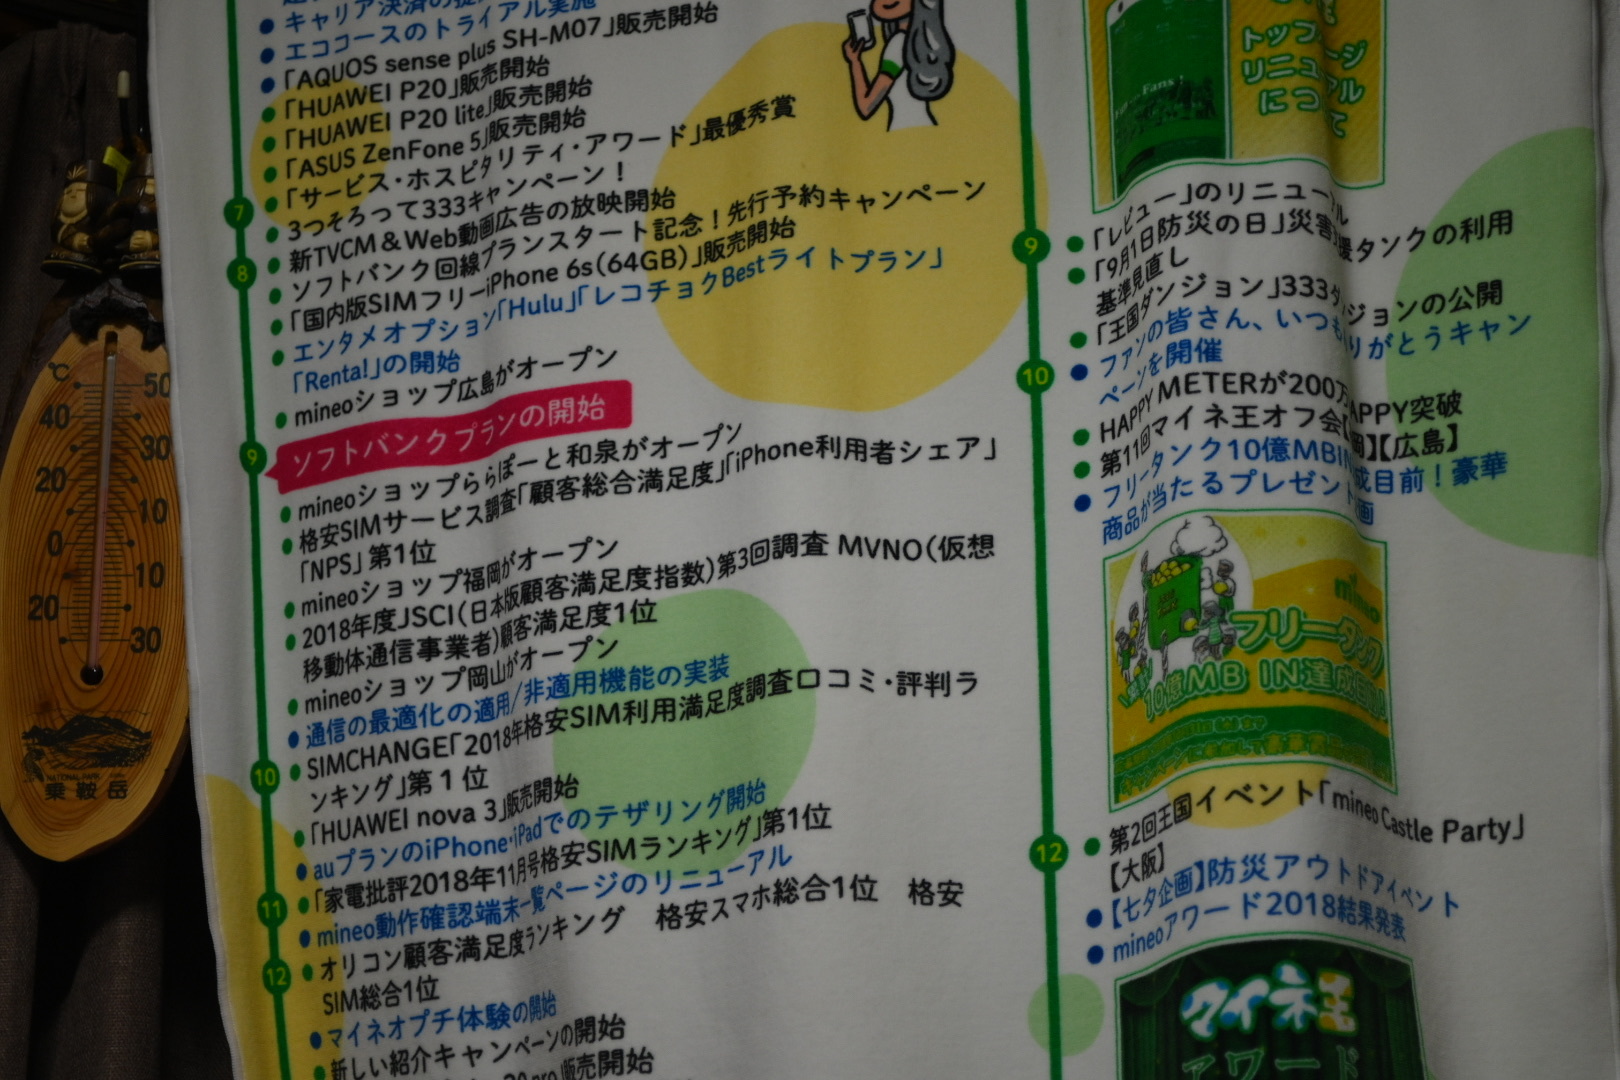 キャリア決済の提
エココースのトライアル実施
「AQUOS sense plus SH-M07」販売開始
「HUAWEI P20」販売開始
「HUAWEI P20 lite」販売開始
「ASUS ZenFone 5」販売開始
「サービス・ホスピタリティ・アワード」最優秀賞
7
3つそろって333キャンペーン！
新TVCM＆Web動画広告の放映開始
8
ソフトバンク回線プランスタート記念！先行予約キャンペーン
「国内版SIMフリーiPhone 6s(64GB)」販売開始
エンタメオプション「Hulu」「レコチョクBestライトプラン」
「Renta!」の開始
mineoショップ広島がオープン
9
ソフトバンクプランの開始
mineoショップららぽーと和泉がオープン
格安SIMサービス調査「顧客総合満足度」「iPhone利用者シェア」
「NPS」第1位
mineoショップ福岡がオープン
2018年度JSCI(日本版顧客満足度指数)第3回調査 MVNO(仮想
移動体通信事業者)顧客満足度1位
mineoショップ岡山がオープン
通信の最適化の適用/非適用機能の実装
10
SIMCHANGE「2018年格安SIM利用満足度調査口コミ・評判ラ
ンキング」第１位
「HUAWEI nova 3」販売開始
auプランのiPhone・iPadでのテザリング開始
11
「家電批評2018年11月号格安SIMランキング」第1位
mineo動作確認端末一覧ページのリニューアル
12
オリコン顧客満足度ランキング　格安スマホ総合1位　格安
SIM総合1位
マイネオプチ体験の開始
新しい紹介キャンペーンの開始
販売開始
トップ
リニュ
につ
て
9
「レビュー」のリニュー
「9月1日防災の日」災害 援タンクの利用
基準見直し
「王国ダンジョン」333ダ ジョンの公開
10
ファンの皆さん、いつも りがとうキャン
ペーンを開催
HAPPY METERが200万 APPY突破
第11回マイネ王オフ会【 岡】【広島】
フリータンク10億MBIN 成目前！豪華
商品が当たるプレゼント 画
mineo
フリータンク
10億MB IN達成目前!
12
第2回王国イベント「mineo Castle Party」
【大阪】
【七夕企画】防災アウトドアイベント
mineoアワード2018結果発表
マイネ王
アワード
℃
50
40
30
20
10
0
10
20
30
NATIONAL PARK
乗鞍岳